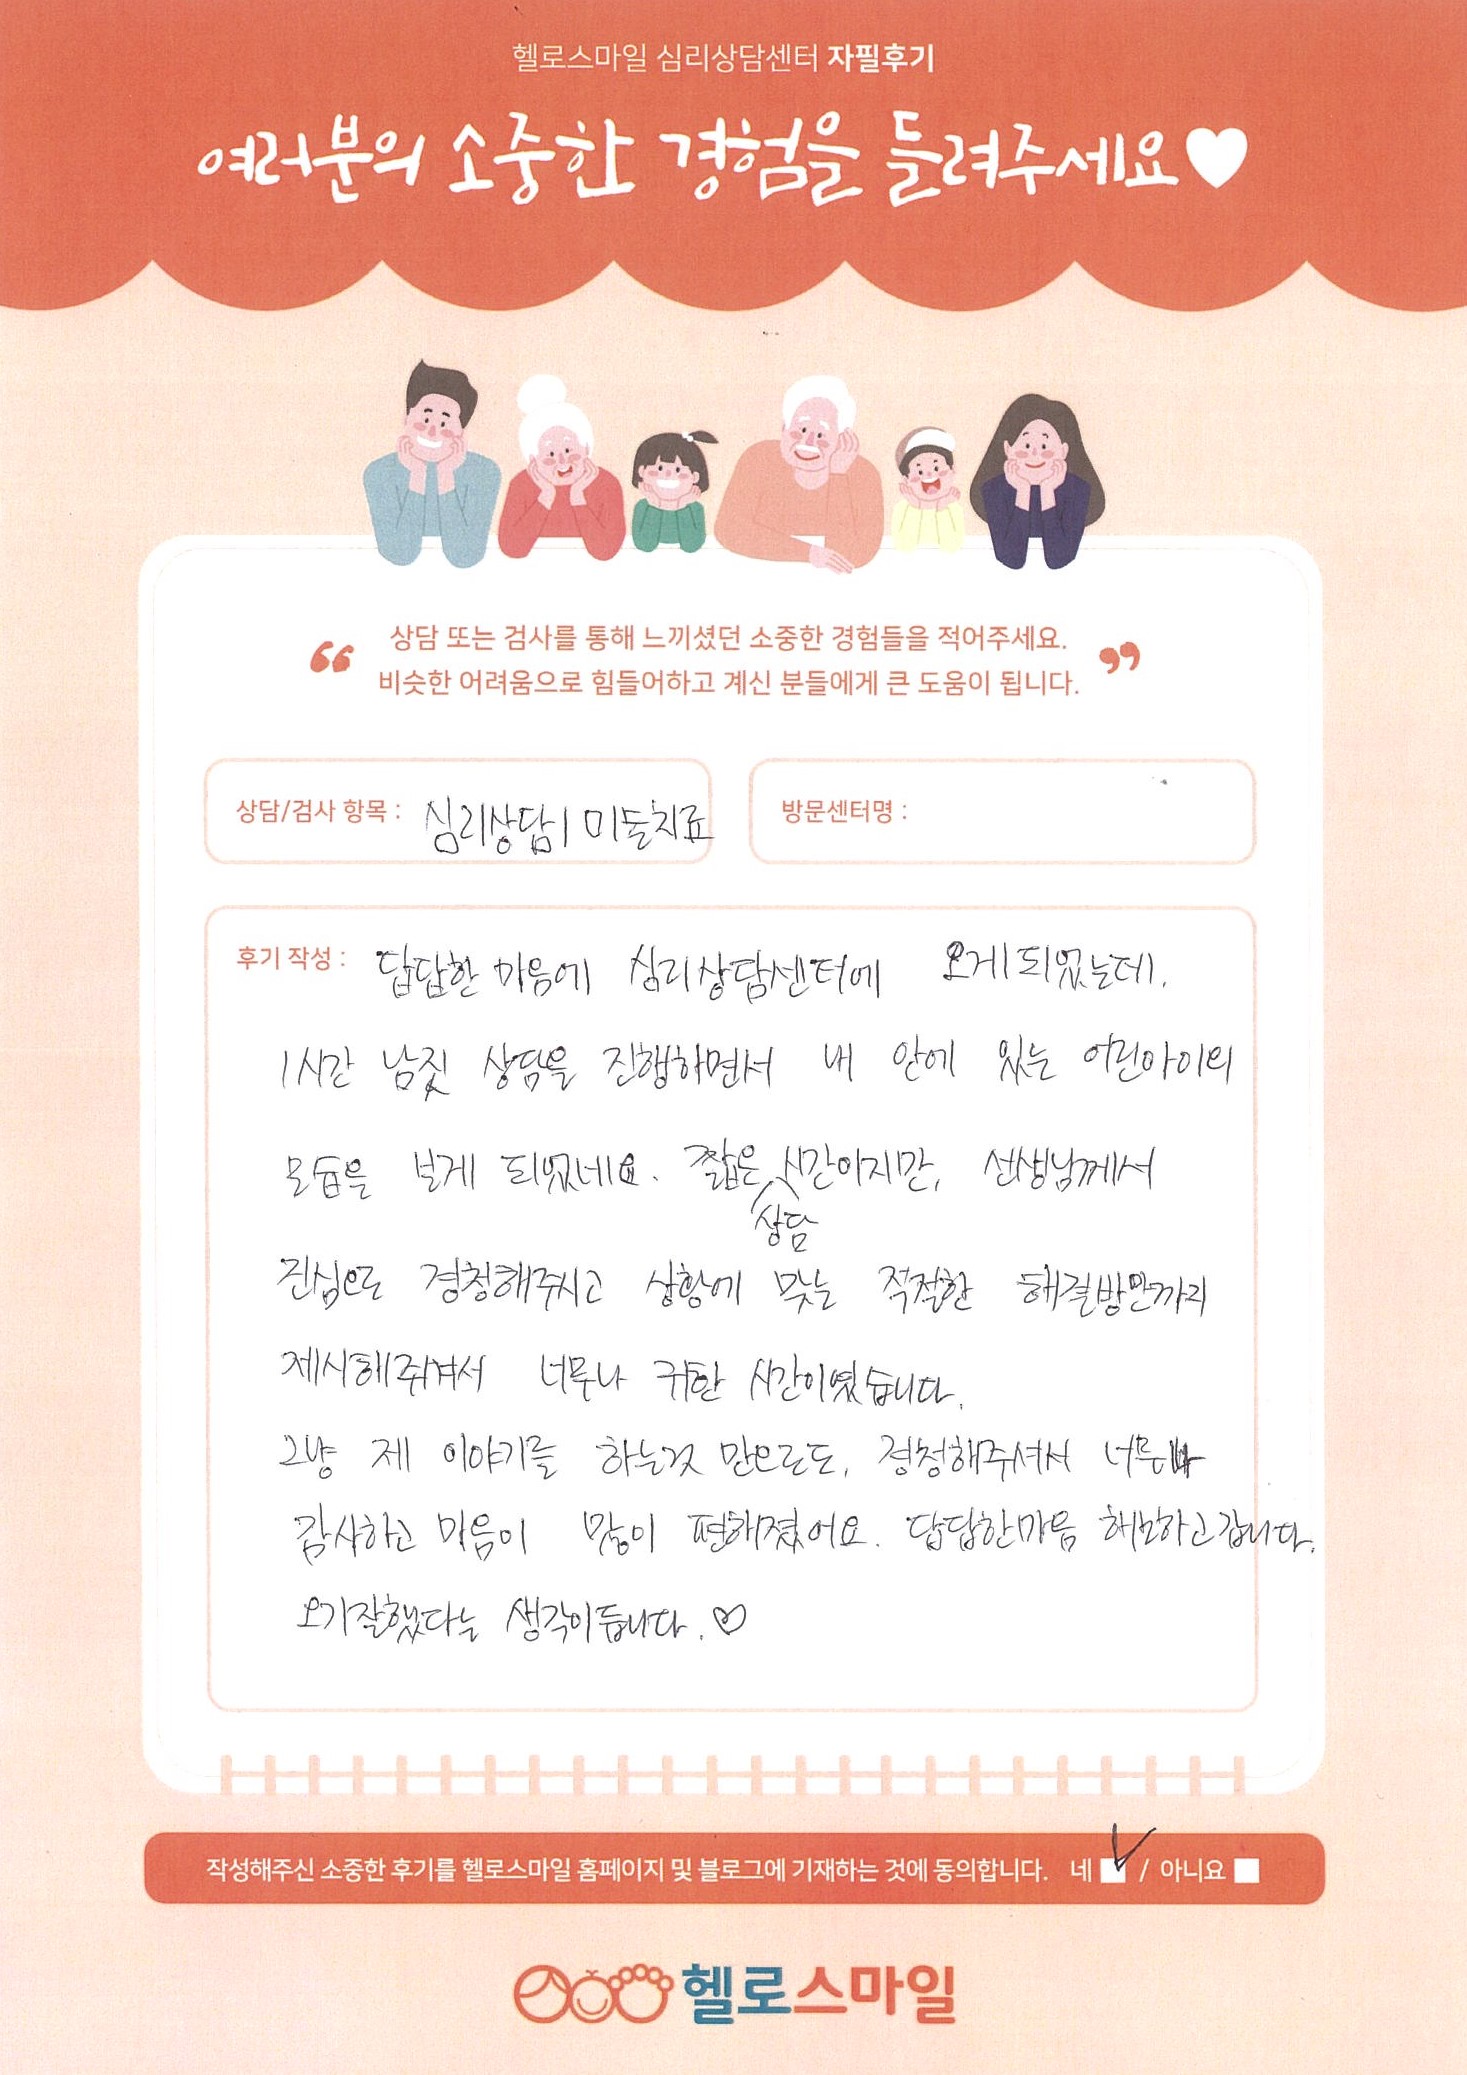 헬로스마일 심리상담센터 자필후기
여러분의 소중한 경험을 들려주세요♥
“ 상담 또는 검사를 통해 느끼셨던 소중한 경험들을 적어주세요.
비슷한 어려움으로 힘들어하고 계신 분들에게 큰 도움이 됩니다. ”
상담/검사 항목 : 심리상담, 미술치료
방문센터명 :
후기 작성 : 답답한 마음에 심리상담센터에 오게되었는데,
1시간 남짓 상담을 진행하면서 내 안에 있는 어린아이의
모습을 보게 되었네요. 짧은 상담 시간이지만, 선생님께서
진심으로 경청해주시고 상황에 맞는 적절한 해결방안까지
제시해주셔서 너무나 귀한 시간이였습니다.
그냥 제 이야기를 하는것 만으로도, 경청해주셔서 너무나
감사하고 마음이 많이 편해졌어요. 답답한마음 해소하고갑니다.
오기잘했다는 생각이듭니다. ♡
작성해주신 소중한 후기를 헬로스마일 홈페이지 및 블로그에 기재하는 것에 동의합니다. 네 ☑ / 아니요 ■
헬로스마일